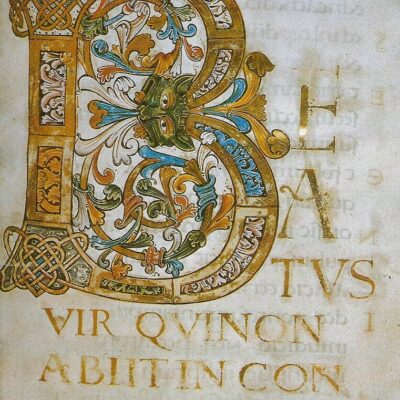 BE
A
TVS
UIR QVI NON
ABIIT IN CON